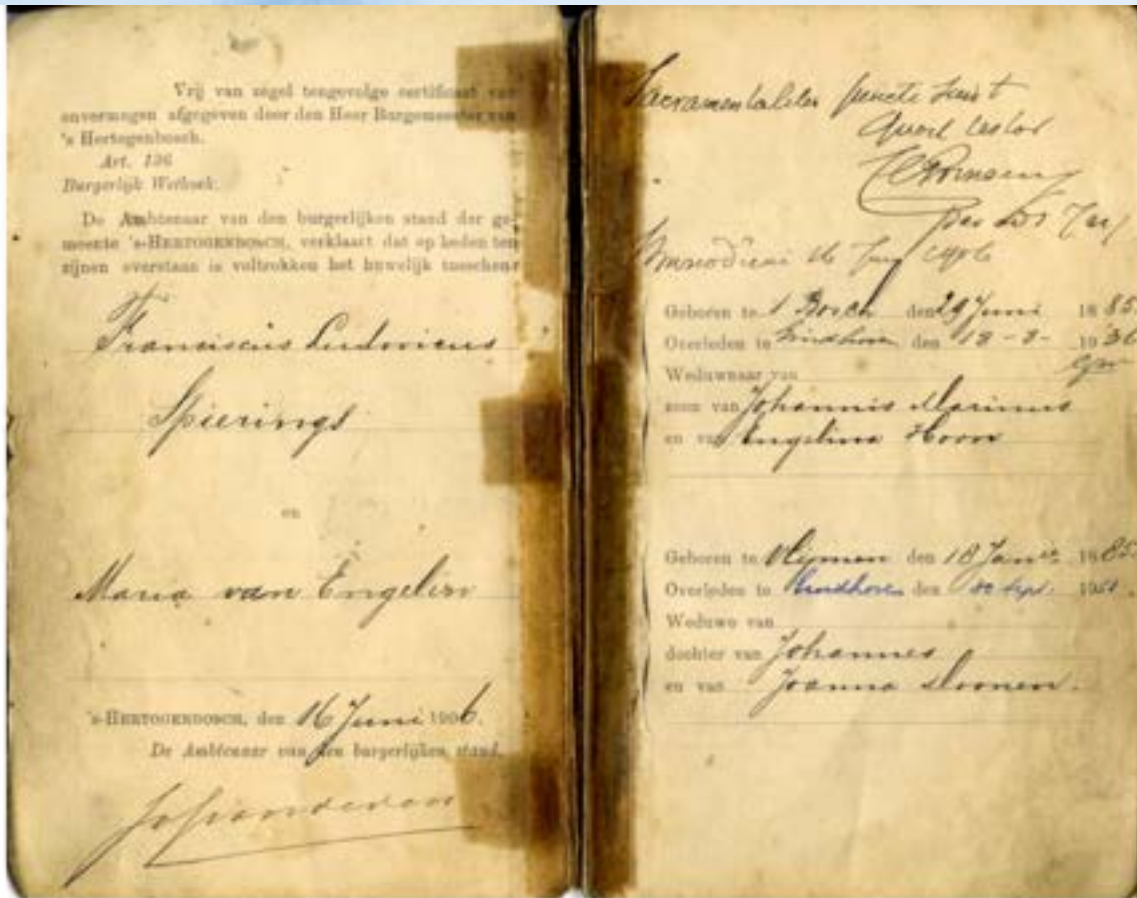 Vrij van zegel tengevolge certificaat van
onvermogen afgegeven door den Heer Burgemeester van
's Hertogenbosch.
Art. 136
Burgerlijk Wetboek.
De Ambtenaar van den burgerlijken stand der ge-
meente 's-HERTOGENBOSCH, verklaart dat op heden ten
zijnen overstaan is voltrokken het huwelijk tusschen:
Franciscus Ludovicus
Spierings
en
Maria van Engelen
's-HERTOGENBOSCH, den 16 Juni 1906.
De Ambtenaar van den burgerlijken stand.
Sacramentaliter juncti sunt
quod testor
16 1906
Geboren te Bosch den 29 Juni 1885
Overleden te Eindhoven den 18 - 8 - 1936
Weduwnaar van
zoon van Johannis Marinus
en van Engelina Hoorn
Geboren te Vlijmen den 18 1885
Overleden te Eindhoven den Sept. 195
Weduwe van
dochter van Johannes
en van Joanna